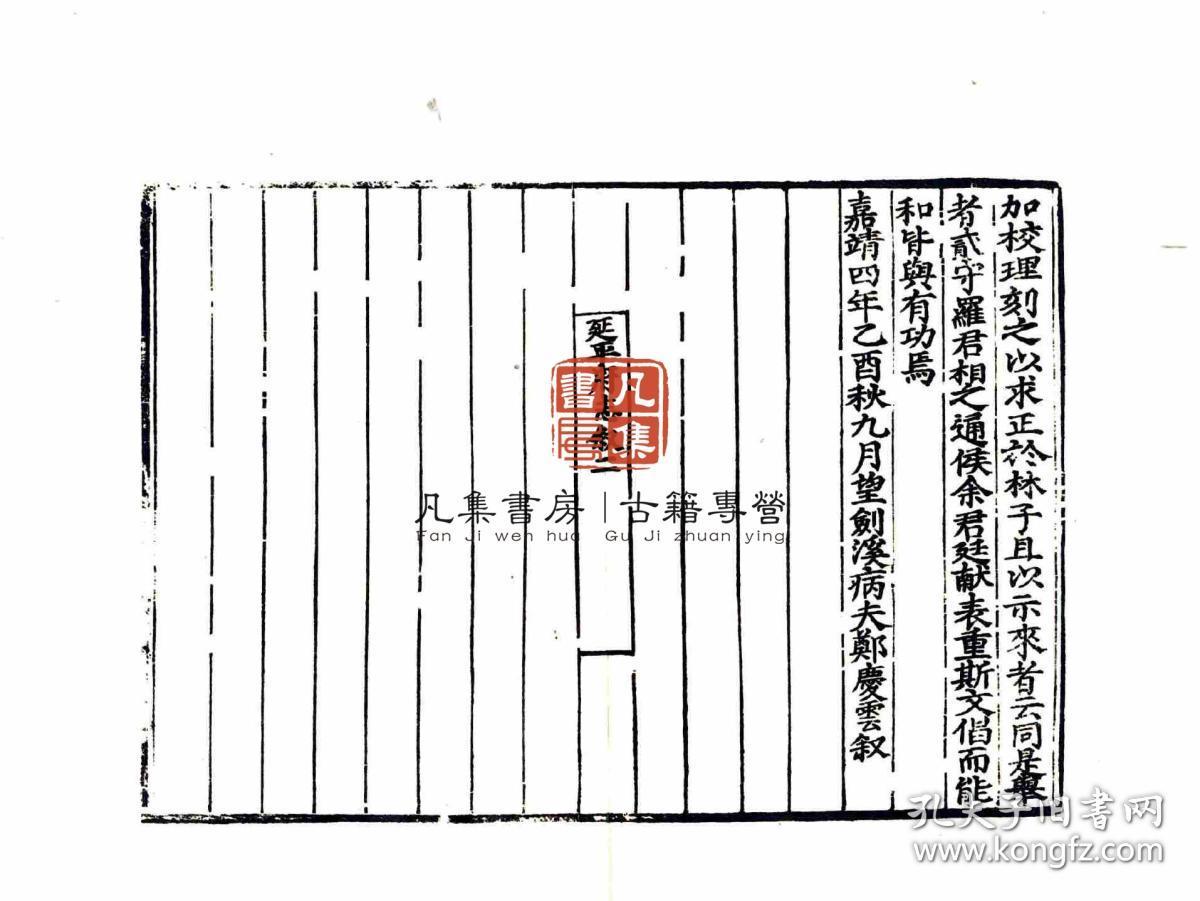 加校理刻之以求正於林子且以示來者云同是舉
者貳守羅君相之通侯余君廷献表重斯文倡而能
和皆與有功焉
嘉靖四年乙酉秋九月望劍溪病夫鄭慶雲叙
延平
二
凡集書房
凡集書房|古籍專營
Fan Ji wen hua Gu Ji zhuan ying
孔夫子旧书网
www.kongfz.com